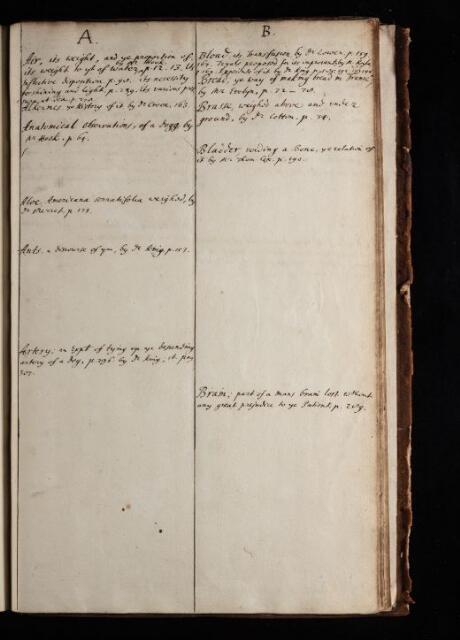 A.
Air, its weight, and ye proportion of
its weight to yt of water, p. 12. 13. Its
by Mr Hook
reflective disposition p. 90. its necessity
for shining and light. p. 279. its various
Alkermes ye history of it by Dr Croon. 163.
Anatomical observations, of a dogg, by
Mr Hook. p. 64.
Aloe Americana serratifolia weighed, by
Dr Merret. p. 173.
Ants, a discourse of ym, by Dr King. p. 187.
Artery; an Expt of tying up ye descending
artery of a dog. p. 296. by Dr King, it. pag
307.
B.
Bloud, its Transfusion by Dr Lower. p. 159.
169. Tryals proposed for its improvement by Mr Boyle
by Dr King
Bread, ye way of making bread in France
by Mr Evelyn. p. 72 –
Brasse, weighed above and under
ground, by Dr Cotton. p. 24.
Bladder voiding a bone, ye relation of
it by Mr. Thom Cox. p. 190.
Brain; part of a mans brain lost without
any great prejudice to ye Patient. p. 209.